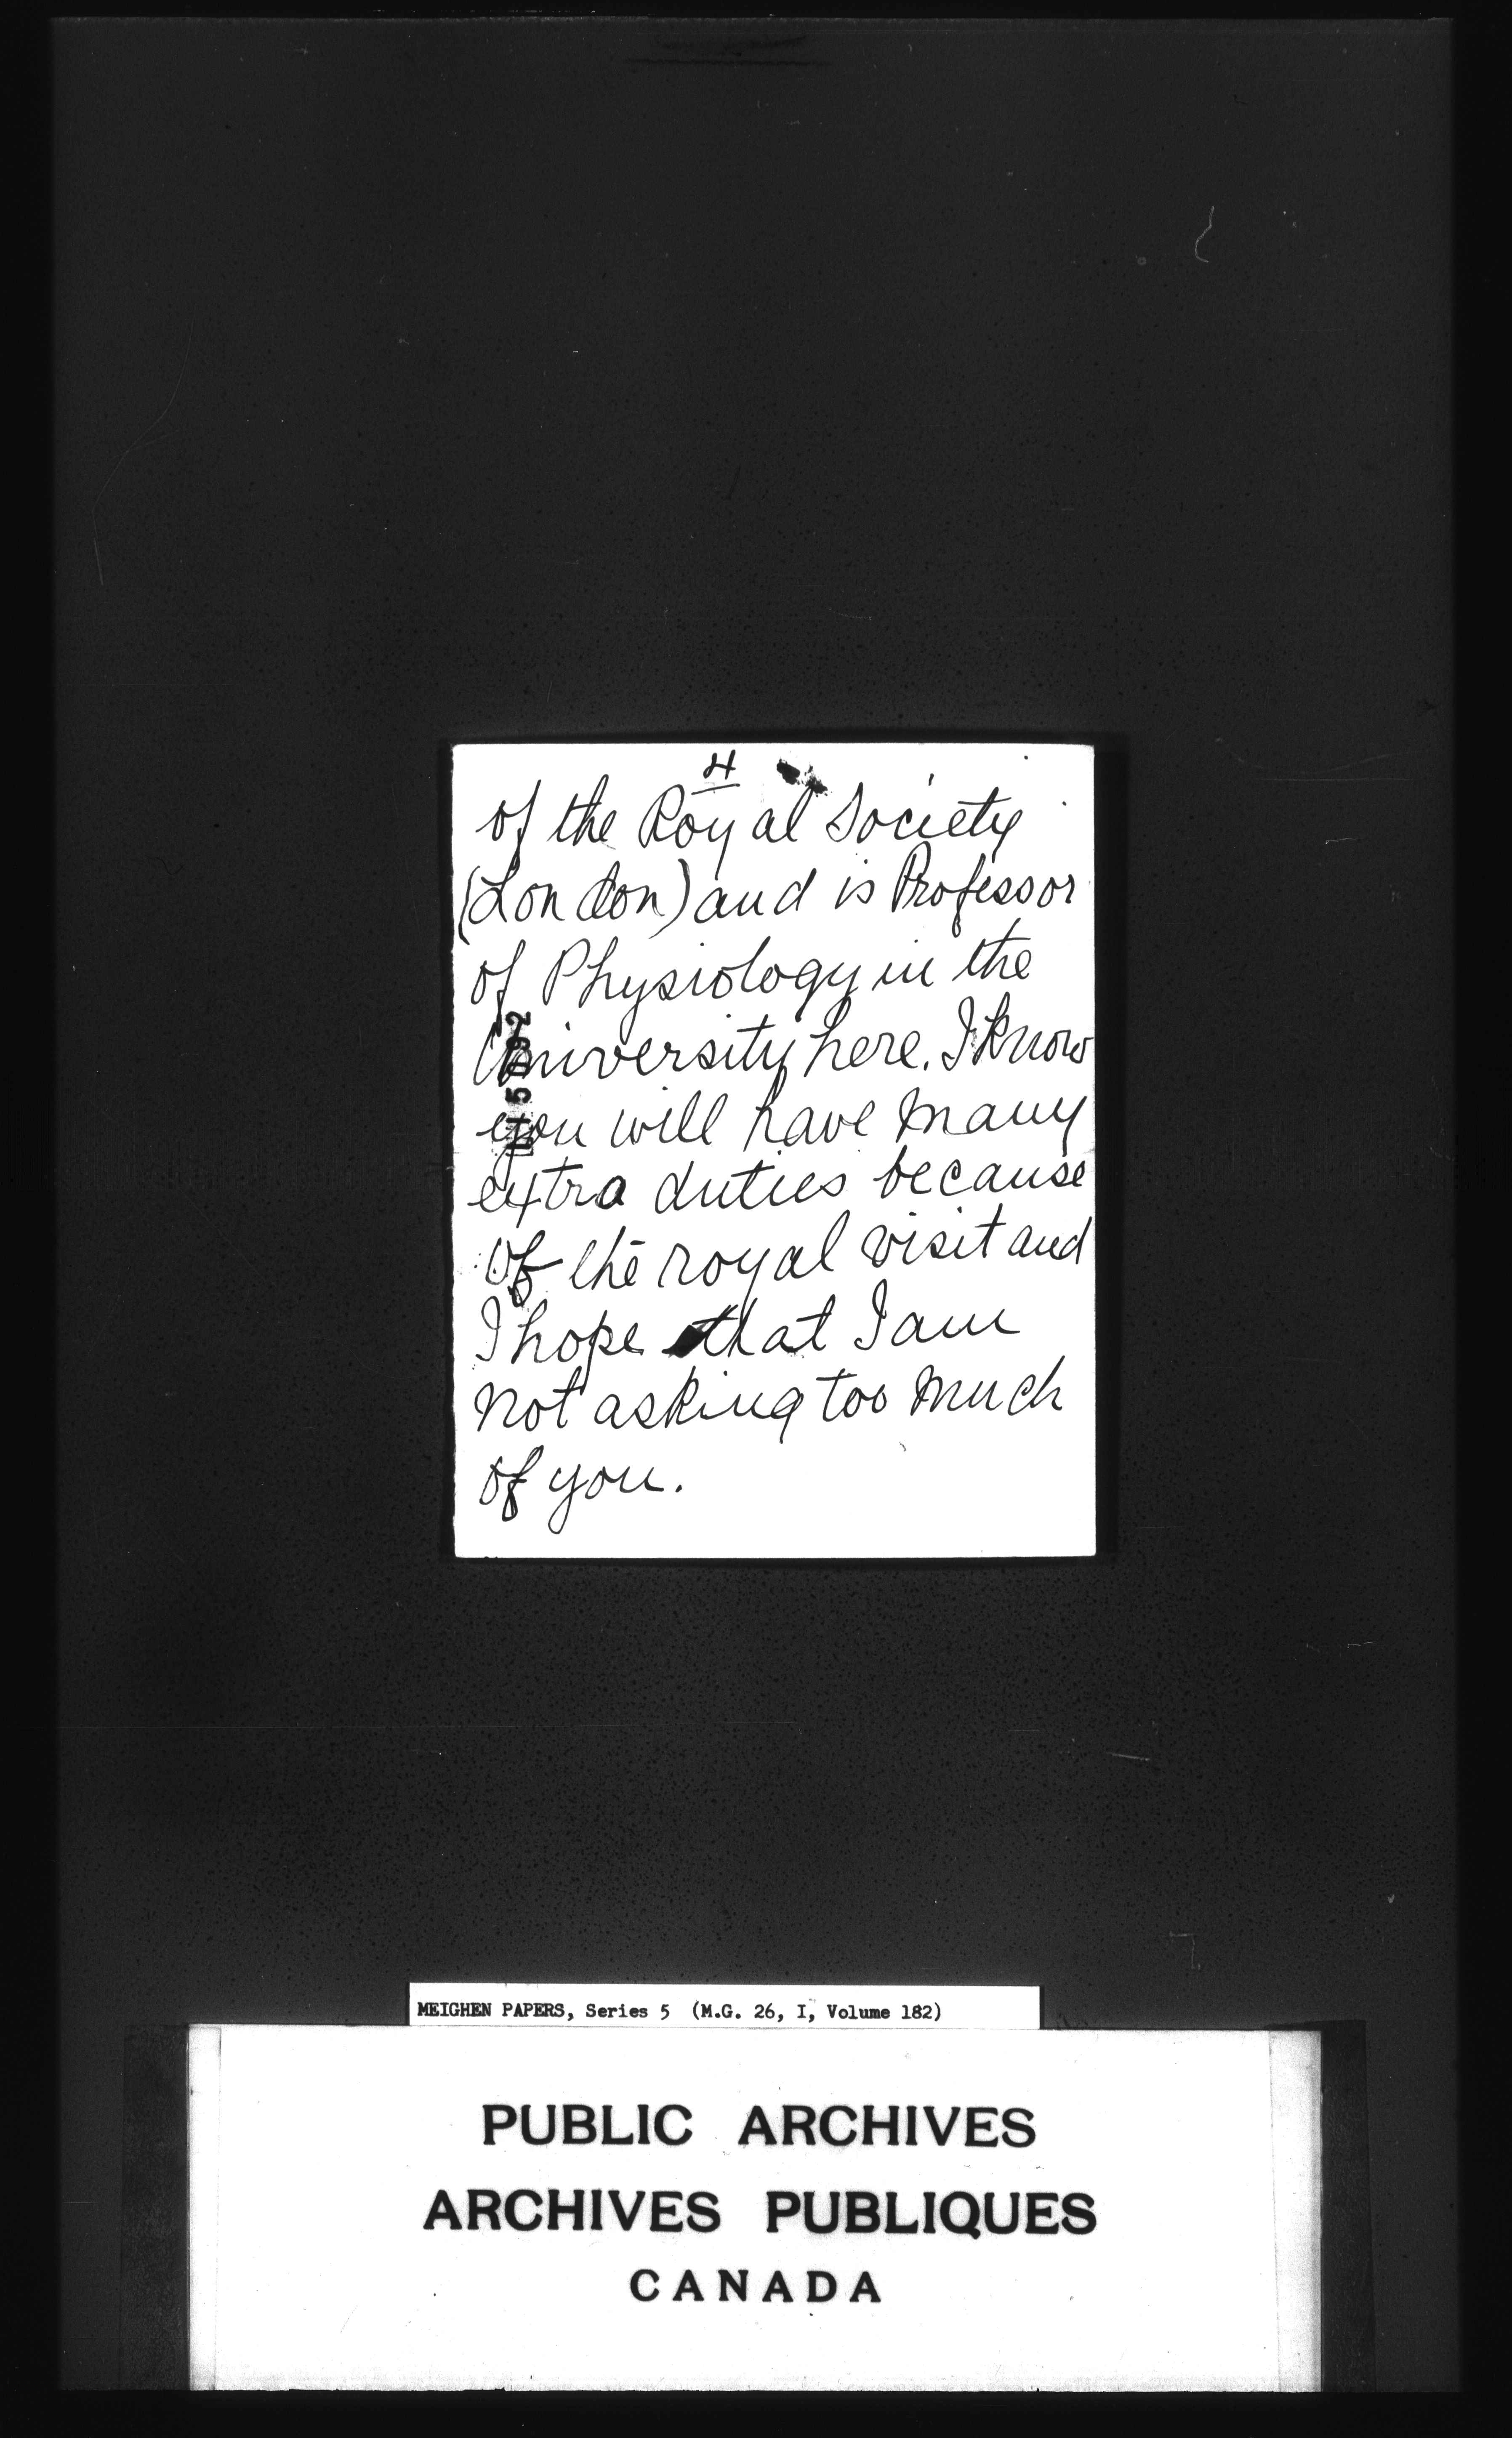 4
of the Royal Society
(London) and is Professor
of Physiology in the
University here. I know
you will have many
extra duties because
of the royal visit and
I hope that I am
not asking too much
of you.
MEIGHEN PAPERS, Series 5 (M.G. 26, I, Volume 182)
PUBLIC ARCHIVES
ARCHIVES PUBLIQUES
CANADA